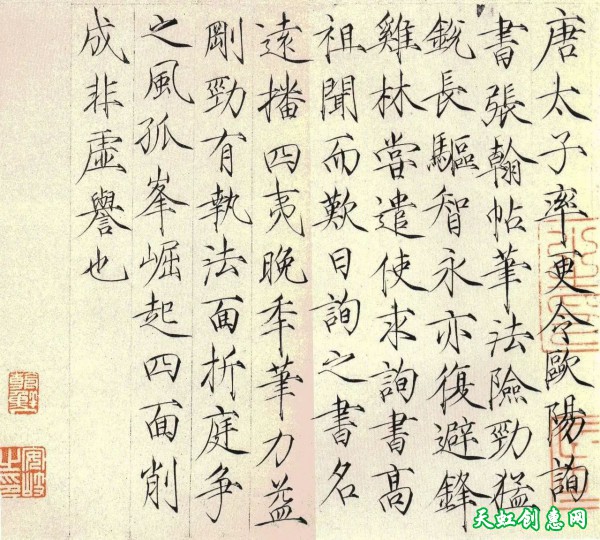 唐太子率更令歐陽詢
書張翰帖筆法險勁猛
銳長驅智永亦復避鋒
雞林嘗遣使求詢書高
祖聞而歎曰詢之書名
遠播四夷晚年筆力益
剛勁有執法面折庭爭
之風孤峯崛起四面削
成非虛譽也
天虹创惠网